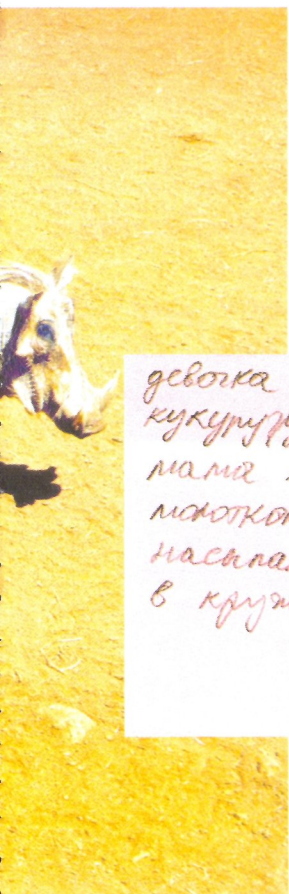 девочка
кукурузу
мама
молотком
насыпа
в круж